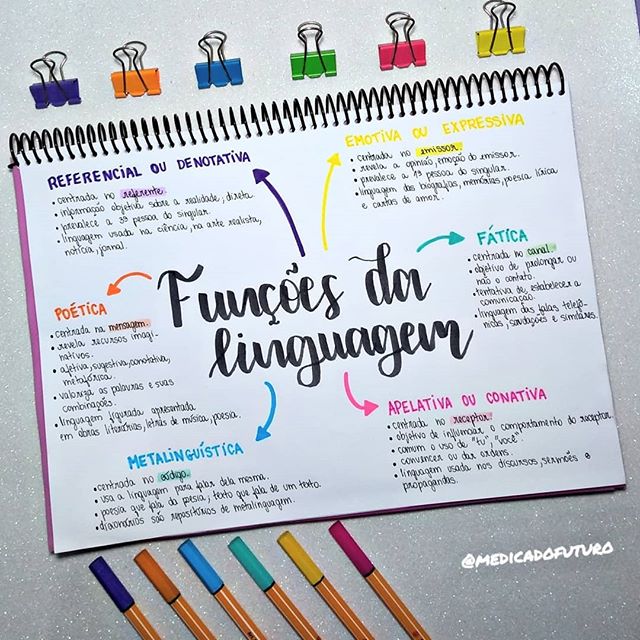 REFERENCIAL OU DENOTATIVA
• centrada no referente.
• informação objetiva sobre a realidade, direta
• prevalece a 3ª pessoa do singular.
• linguagem usada na ciência, na arte realista,
notícia, jornal.
EMOTIVA OU EXPRESSIVA
• centrada no emissor.
• revela a opinião, emoção do emissor.
• prevalece a 1ª pessoa do singular.
• linguagem das biografias, memórias, poesia lírica
e cartas de amor.
FÁTICA
• centrada no canal.
• objetivo de prolongar ou
não o contato.
• tentativa de estabelecer a
comunicação.
• linguagem das falas telefô-
nicas, saudações e similares.
POÉTICA
• centrada na mensagem.
• revela recursos imagi-
nativos.
• afetiva, sugestiva, conotativa,
metafórica.
• valoriza as palavras e suas
combinações.
• linguagem figurada apresentada
em obras literárias, letras de música, poesia.
Funções da
linguagem
METALINGUÍSTICA
• centrada no código.
• usa a linguagem para falar dela mesma.
• poesia que fala da poesia, texto que fala de um texto.
• dicionários são repositórios de metalinguagem.
APELATIVA OU CONATIVA
• centrada no receptor.
• objetivo de influenciar o comportamento do receptor.
• comum o uso de "tu", "você".
• convencer ou dar ordens.
• linguagem usada nos discursos, sermões e
propagandas.
@MEDICADOFUTURO